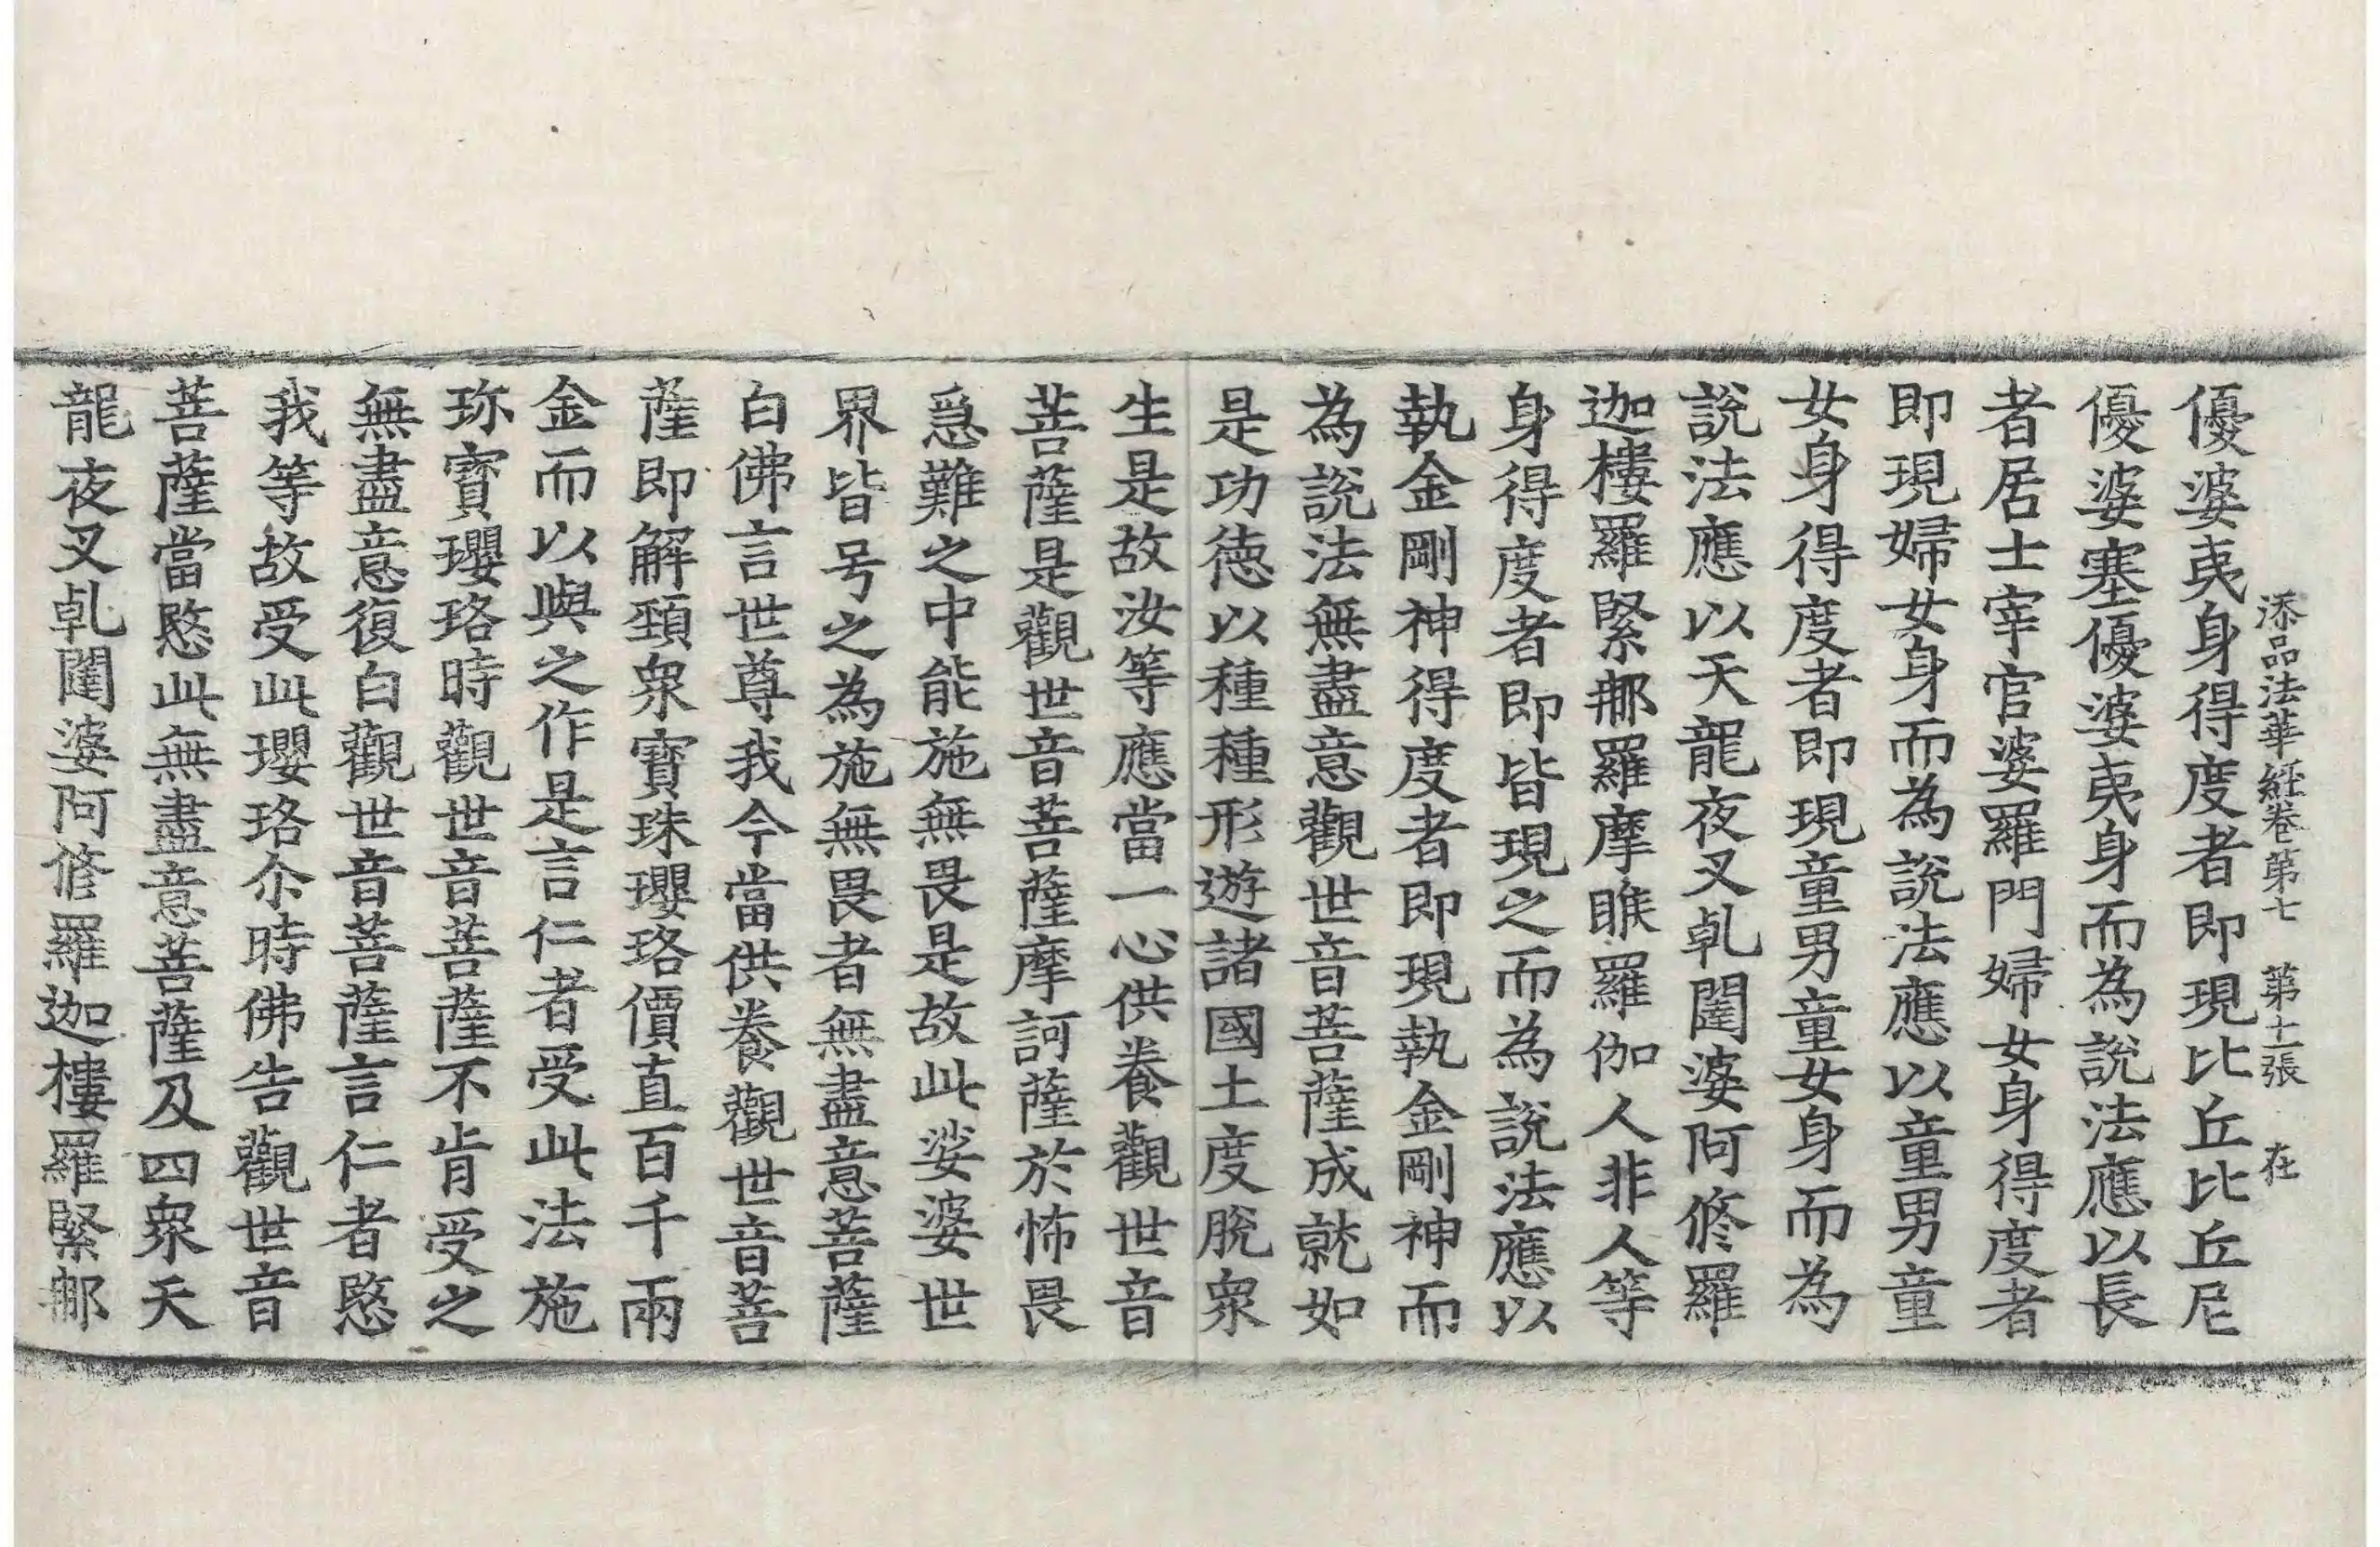 添品法華經卷第七 第十一張 在
優婆夷身得度者即現比丘比丘尼
優婆塞優婆夷身而為說法應以長
者居士宰官婆羅門婦女身得度者
即現婦女身而為說法應以童男童
女身得度者即現童男童女身而為
說法應以天龍夜叉乹闥婆阿修羅
迦樓羅緊那羅摩睺羅伽人非人等
身得度者即皆現之而為說法應以
執金剛神得度者即現執金剛神而
為說法無盡意觀世音菩薩成就如
是功德以種種形遊諸國土度脫衆
生是故汝等應當一心供養觀世音
菩薩是觀世音菩薩摩訶薩於怖畏
急難之中能施無畏是故此娑婆世
界皆号之為施無畏者無盡意菩薩
白佛言世尊我今當供養觀世音菩
薩即解頸衆寶珠瓔珞價直百千兩
金而以與之作是言仁者受此法施
珎寶瓔珞時觀世音菩薩不肯受之
無盡意復白觀世音菩薩言仁者愍
我等故受此瓔珞尒時佛告觀世音
菩薩當愍此無盡意菩薩及四衆天
龍夜叉乹闥婆阿修羅迦樓羅緊那